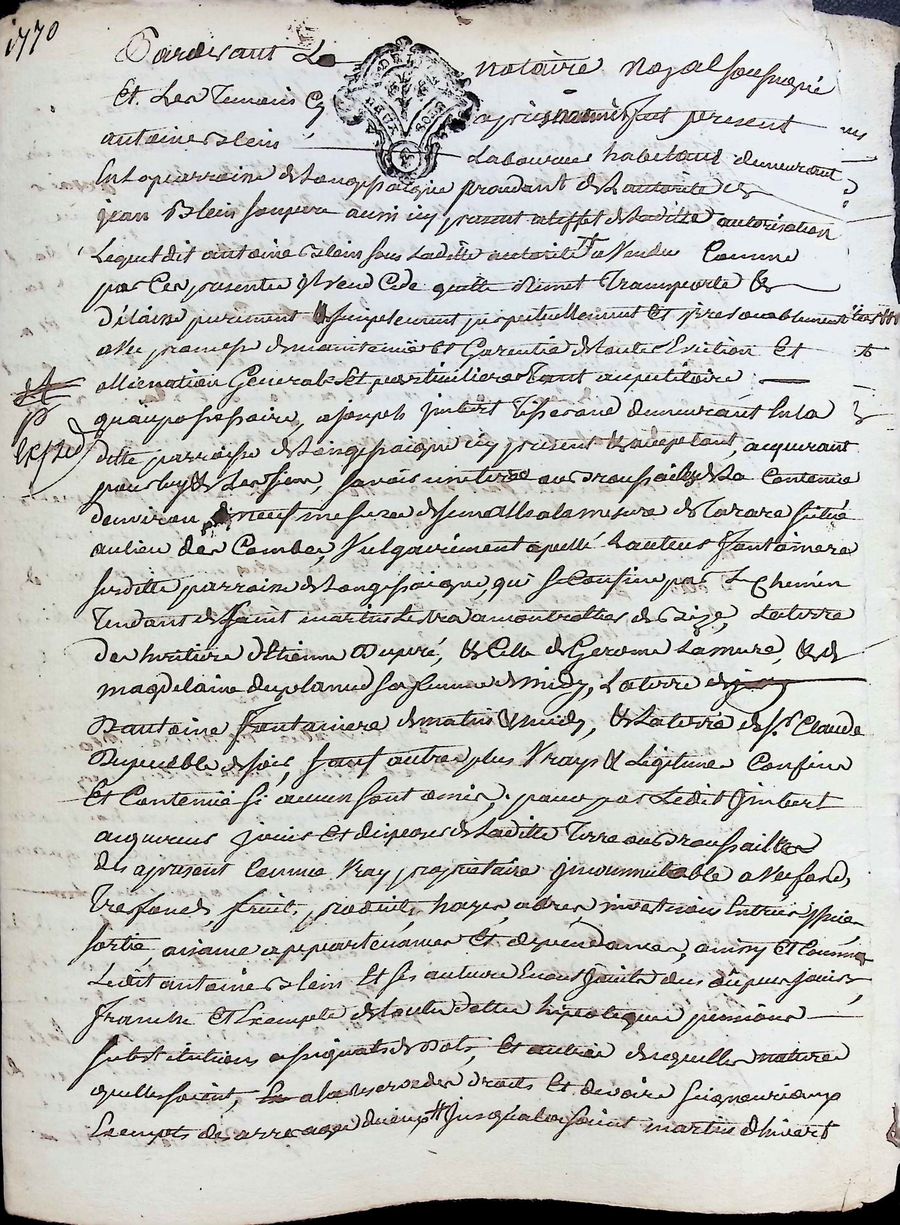 1770
Pardevant Le notaire Royal soussigné
Et Les Temoins Cy apres nommés fut present
antoine Blein Laboureur habitant demeurant
En La parroisse de Longessaigne procedant de Lautorité de
jean Blein son pere aussi icy present a leffet de Ladite autorisation
Lequel dit antoine Blein sous Ladite autorité a Vendu Comme
par Ces presentes il vend Cede quitte Remet Transporte &
Délaisse purement & simplement perpetuellement Et irrevocablement
avec promesse de maintenir Et Garentie de toutes Eviction Et
allienation Generale Et particuliere Tant au petitoire
quau possessoire, a joseph jmbert Tisserand demeurant En la
dite parroisse de Longessaigne icy present & acceptant, acquerant
pour luy & Les siens, savoir une terre ou Broussailles de La Contenue
denviron neuf mesures de semaille a la mesure de Tarare située
au lieu des Combes, Vulgairement apellé Lauteus Fontainere
susditte parroisse de Longessaigne, qui se Confine par Le Chemin
Tendant de Saint martin Lestra a montrottier de Bize, La terre
des heritiers dEtienne Dupré, & Celle de Gerome Lamure, & de
magdelaine duplan sa femme de midy, La terre
Dantoine Fontainere de matin & midy, & La terre de Sr. Claude
Dupeuble de soir, sauf autres plus Vrays & Legitimes Confins
Et Contenue si aucun sont omis, pour par Ledit Jmbert
acquereur jouir Et disposer de Ladite Terre ou Broussailles
des apresent Comme Vray proprietaire Jncommutable avec fonds,
Tres fonds, fruits, produits, hayes, arbres, investisons Entrées issues
sortie, aisance appartenances Et dependances, ainsy Et Comme
Ledit antoine Blein Et ses auteurs En ont jouit ou du pu jouir,
Franche Et Exempte de toutes dettes hipoteques pensions
substitutions assignats de Dots, Et autres de quelles natures
quelles soient, a la Reserve des droits Et devoirs seigneuriaux
Exempts de arrerages diceux jusqua la saint martin dhivert